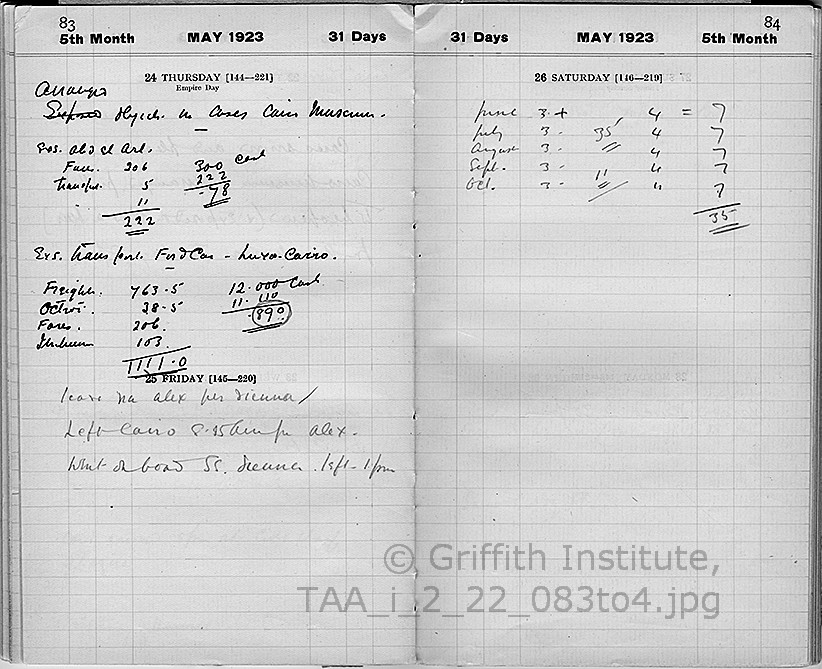 83
5th Month MAY 1923 31 Days
24 THURSDAY [144—221]
Empire Day
Arranged
Exposed Objects in Cases Cairo Museum.
Exs. Abd el Aal.
Fares. 206 300 Cash
Transport. 5 222
11 78
222
Exs. Transport. Ford Car - Luxor-Cairo.
Freight. 763.5 12.000 Cash
Octroi. 38.5 11.110
Fares. 206. 890
103.
1111.0
25 FRIDAY [145—220]
leave via Alex per Vienna
Left Cairo 8.25 am for Alex.
Went on board SS. Vienna. left - 1 pm
84
31 Days MAY 1923 5th Month
26 SATURDAY [146—219]
June 3 + 4 = 7
July 3 - 35 4 7
August 3 - 4 7
Sept. 3 - 11 4 7
Oct. 3 - 4 7
35
© Griffith Institute,
TAA_i_2_22_083to4.jpg